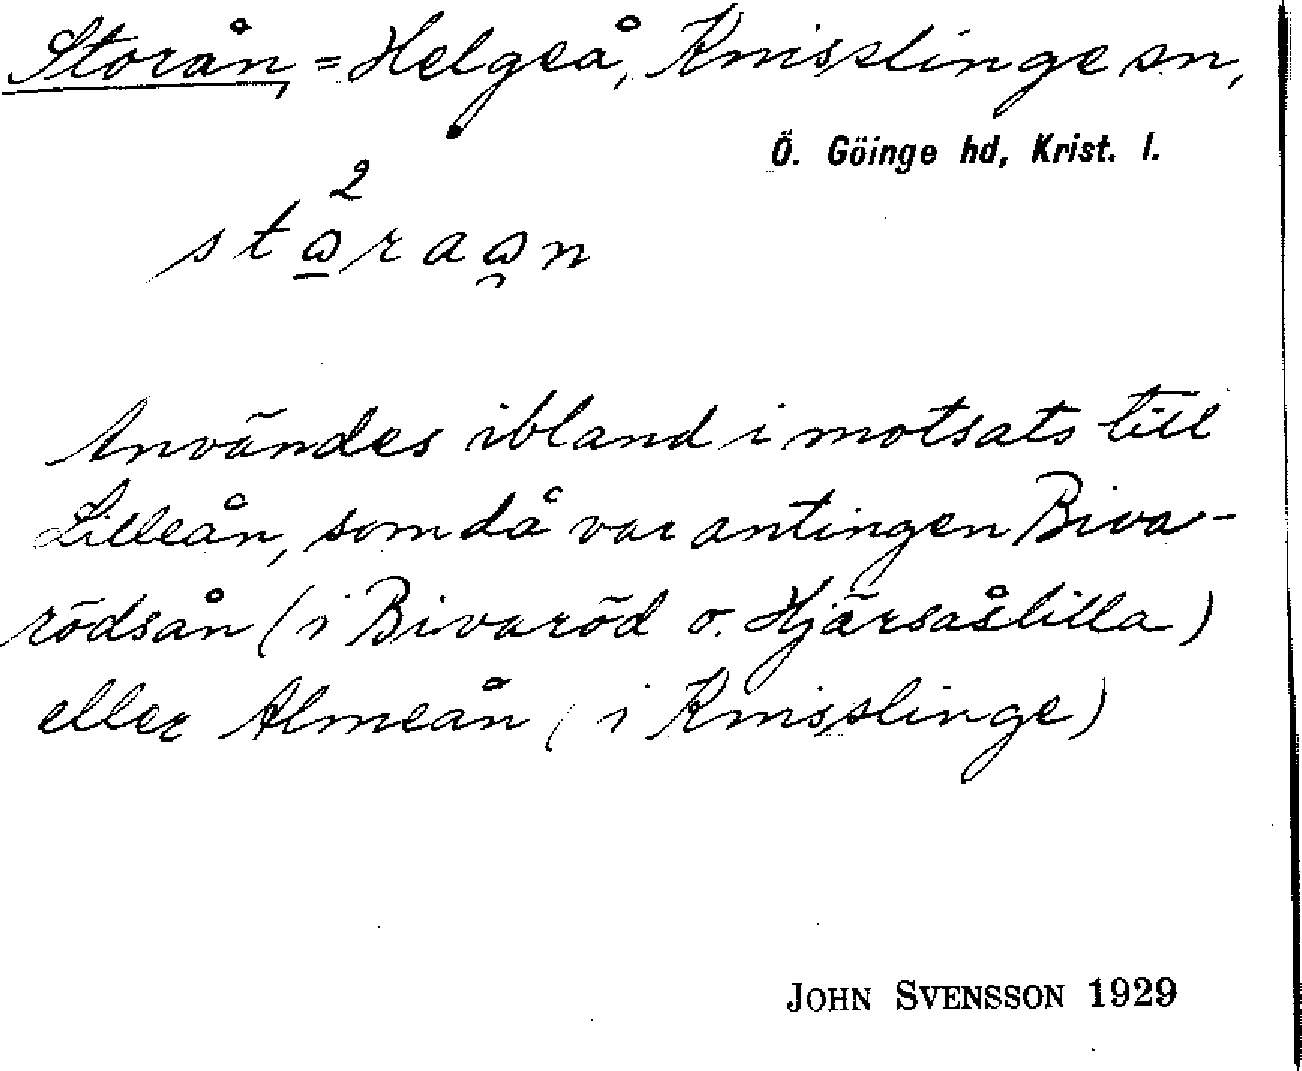 Storån, = Helgeå, Knisslinge sn,
Ö. Göinge hd, Krist. l.
2
Användes ibland i motsats till
Lilleån, som då var antingen Biva-
rödsån (i Bivaröd o. Hjärsåslilla)
eller Almeån (i Knisslinge)
JOHN SVENSSON 1929